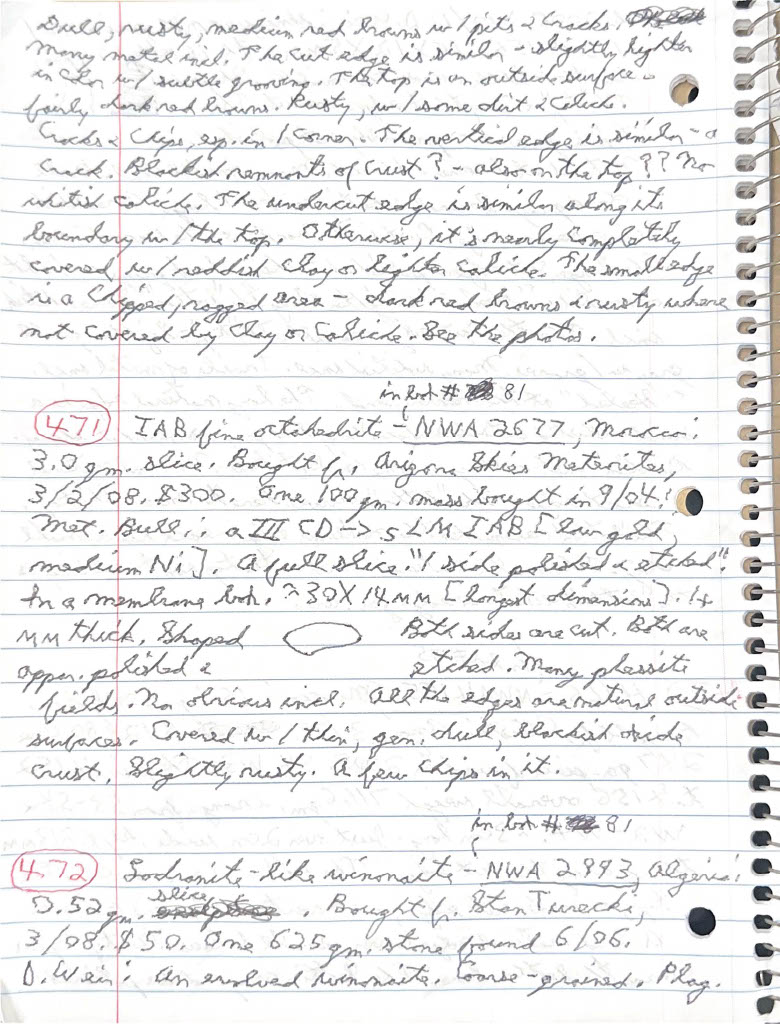 Dull, rusty, medium red browns w/ pits & cracks.
Many metal incl. The cut edge is similar - slightly lighter
in color w/ subtle grooving. The top is an outside surface -
fairly dark red browns. Rusty, w/ some dirt & caliche.
Cracks & chips, esp. in 1 corner. The vertical edge is similar - a
crack. Blackish remnants of crust? - also on the top?? No
whitish caliche. The undercut edge is similar along its
boundary w/ the top. Otherwise, it's nearly completely
covered w/ reddish clay or lighter caliche. The small edge
is a chipped, ragged area - dark red browns & rusty where
not covered by clay or caliche. See the photos.
in box # 81
471 IAB fine octahedrite - NWA 2677, Morocco:
3.0 gm. slice. Bought fr. Arizona Skies Meteorites,
3/2/08. $300. One 100 gm. mass bought in 9/04.
Met. Bull.: a III CD → sLM IAB [low gold,
medium Ni]. A full slice. "1 side polished & etched".
In a membrane box. ~30X14MM [longest dimensions]. 1+
MM thick. Shaped Both sides are cut. Both are
appar. polished & etched. Many plessite
fields. No obvious incl. All the edges are natural outside
surfaces. Covered w/ thin, gen. dull, blackish oxide
crust. Slightly rusty. A few chips in it.
in box # 81
472 Lodranite-like winonaite - NWA 2993, Algeria:
5.52 gm. slice. Bought fr. Stan Turecki,
3/08. $50. One 625 gm. stone found 6/06.
D. Weir: An evolved winonaite. Coarse-grained. Plag.